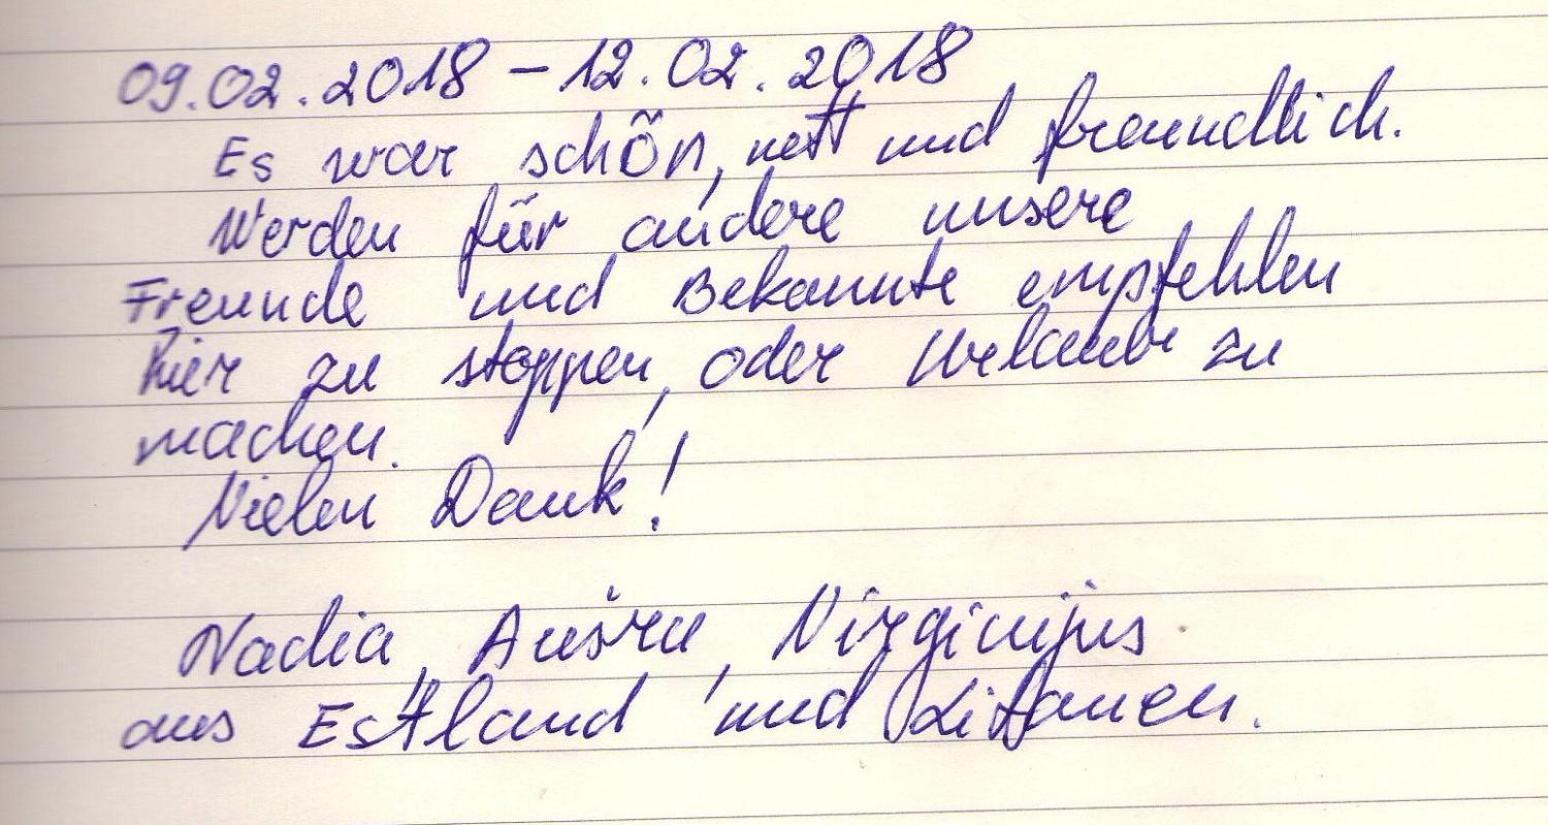 09.02.2018 – 12.02.2018
Es war schön, nett und freundlich.
Werden für andere unsere
Freunde und Bekannte empfehlen
hier zu stoppen, oder Urlaub zu
machen.
Vielen Dank!
Nadia, Virginijus
aus Estland und Litauen.